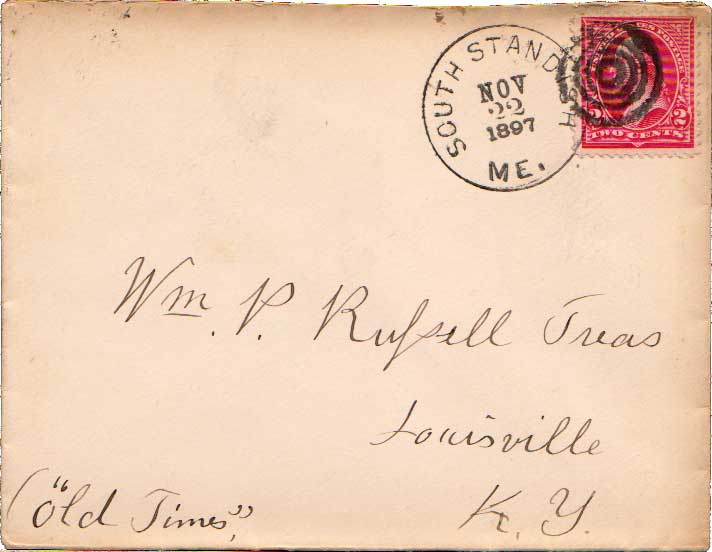 SOUTH STANDISH
NOV
22
1897
ME.
2 2
TWO CENTS
Wm. P. Russell Treas
Louisville
K. Y.
("Old Times",